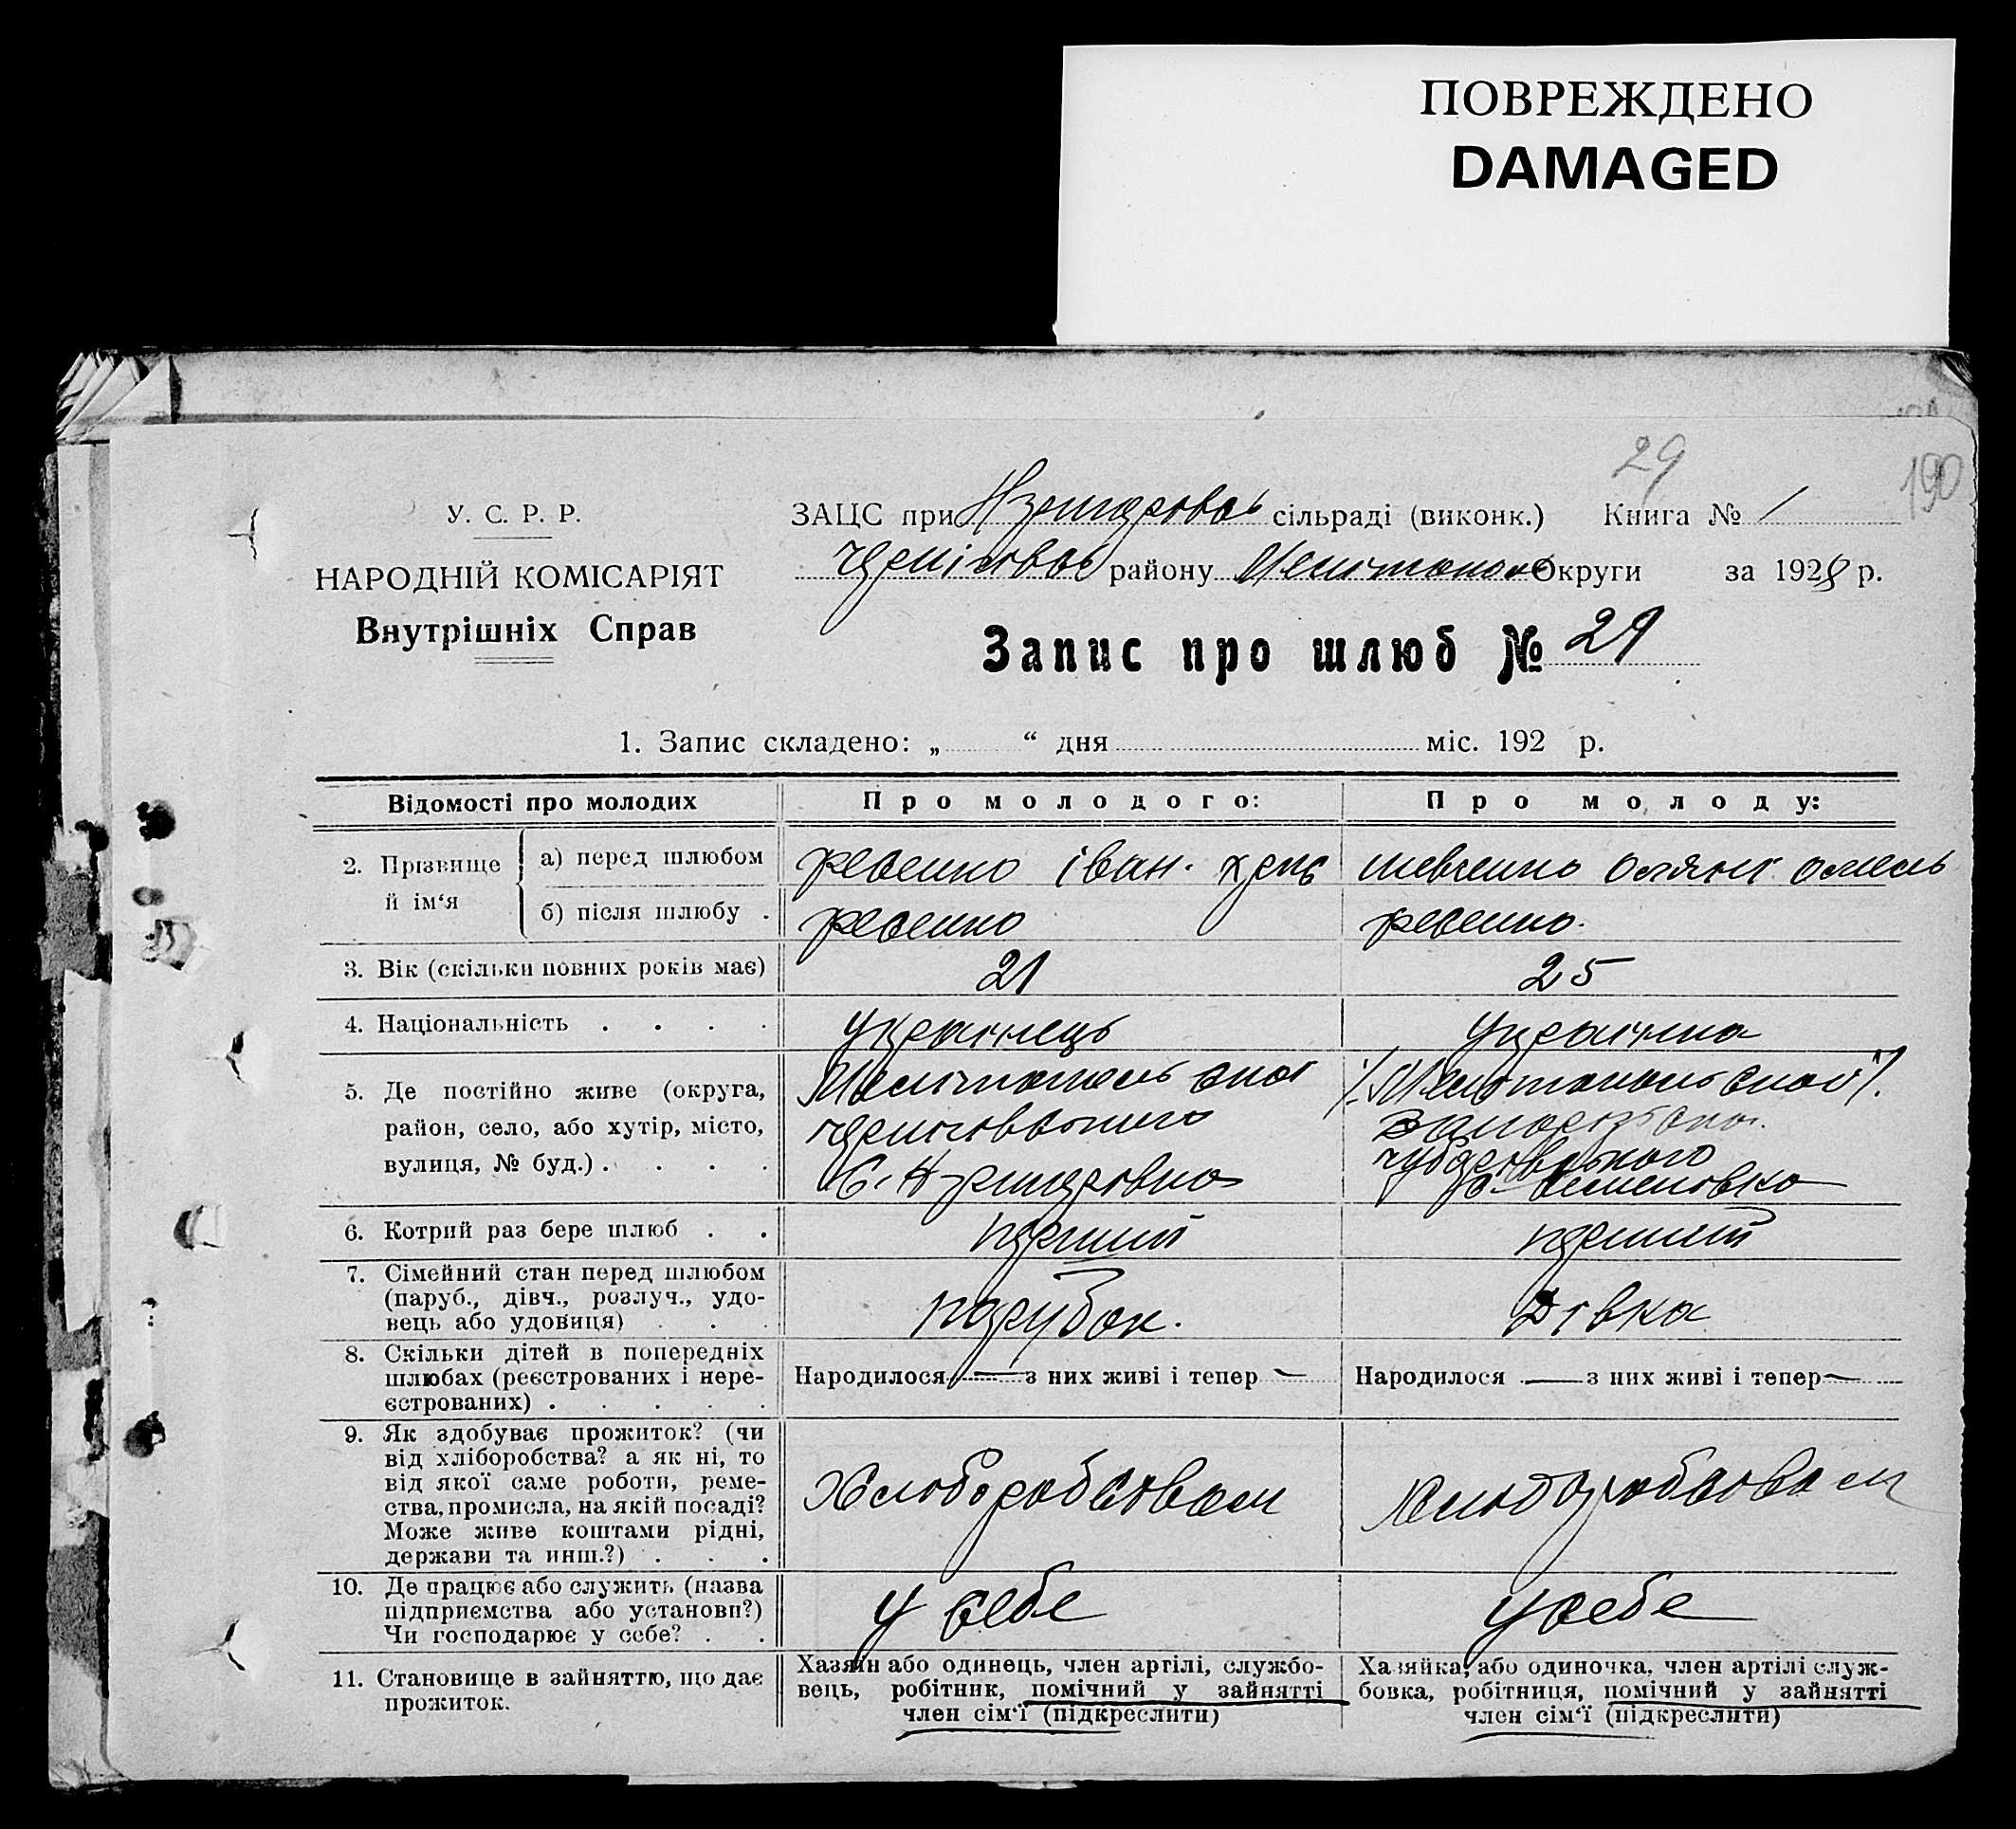 ПОВРЕЖДЕНО
DAMAGED
29
190
У. С. Р. Р.
НАРОДНІЙ КОМІСАРІЯТ
Внутрішніх Справ
ЗАЦС при сільраді (виконк.) Книга № 1
району Округи за 1928 р.
Запис про шлюб № 29
1. Запис складено: „ “ дня міс. 192 р.
Відомості про молодих
Про молодого:
Про молоду:
2. Прізвище й ім‘я
а) перед шлюбом
Ревенко Іван.
Шевченко
б) після шлюбу .
Ревенко
Ревенко.
3. Вік (скільки повних років має)
21
25
4. Національність . . . .
Українець
Українка
5. Де постійно живе (округа,
район, село, або хутір, місто,
вулиця, № буд.) . . . .
6. Котрий раз бере шлюб . .
перший
перший
7. Сімейний стан перед шлюбом
(паруб., дівч., розлуч., удо-
вець або удовиця) . . .
парубок.
Дівка
8. Скільки дітей в попередніх
шлюбах (реєстрованих і нере-
єстрованих) . . . . .
Народилося — з них живі і тепер —
Народилося — з них живі і тепер —
9. Як здобуває прожиток? (чи
від хліборобства? а як ні, то
від якої саме роботи, реме-
ства, промисла, на якій посаді?
Може живе коштами рідні,
держави та инш.?) . . .
Хліборобством
Хліборобством
10. Де працює або служить (назва
підприємства або установи?)
Чи господарює у себе? . .
У себе
У себе
11. Становище в зайняттю, що дає
прожиток.
Хазяїн або одинець, член артілі, службо-
вець, робітник, помічний у зайнятті
член сім‘ї (підкреслити)
Хазяйка, або одиночка, член артілі служ-
бовка, робітниця, помічний у зайнятті
член сім‘ї (підкреслити)